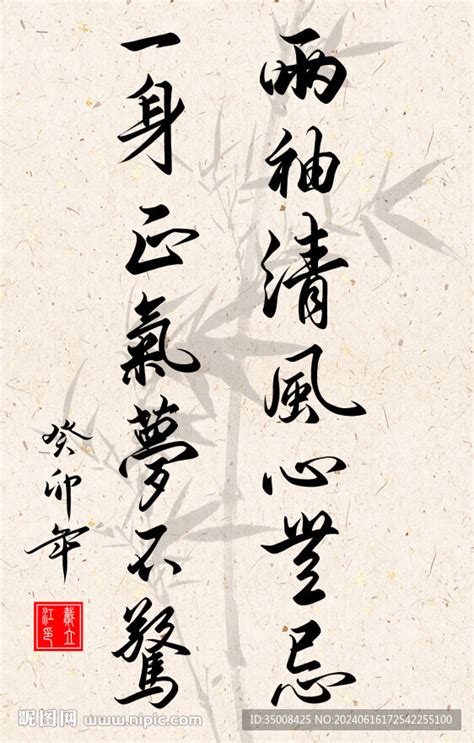 兩袖清風心無忌
一身正氣夢不驚
癸卯年
戴立
江印
昵图网 www.nipic.com
ID:35008425 NO:20240616172542255100